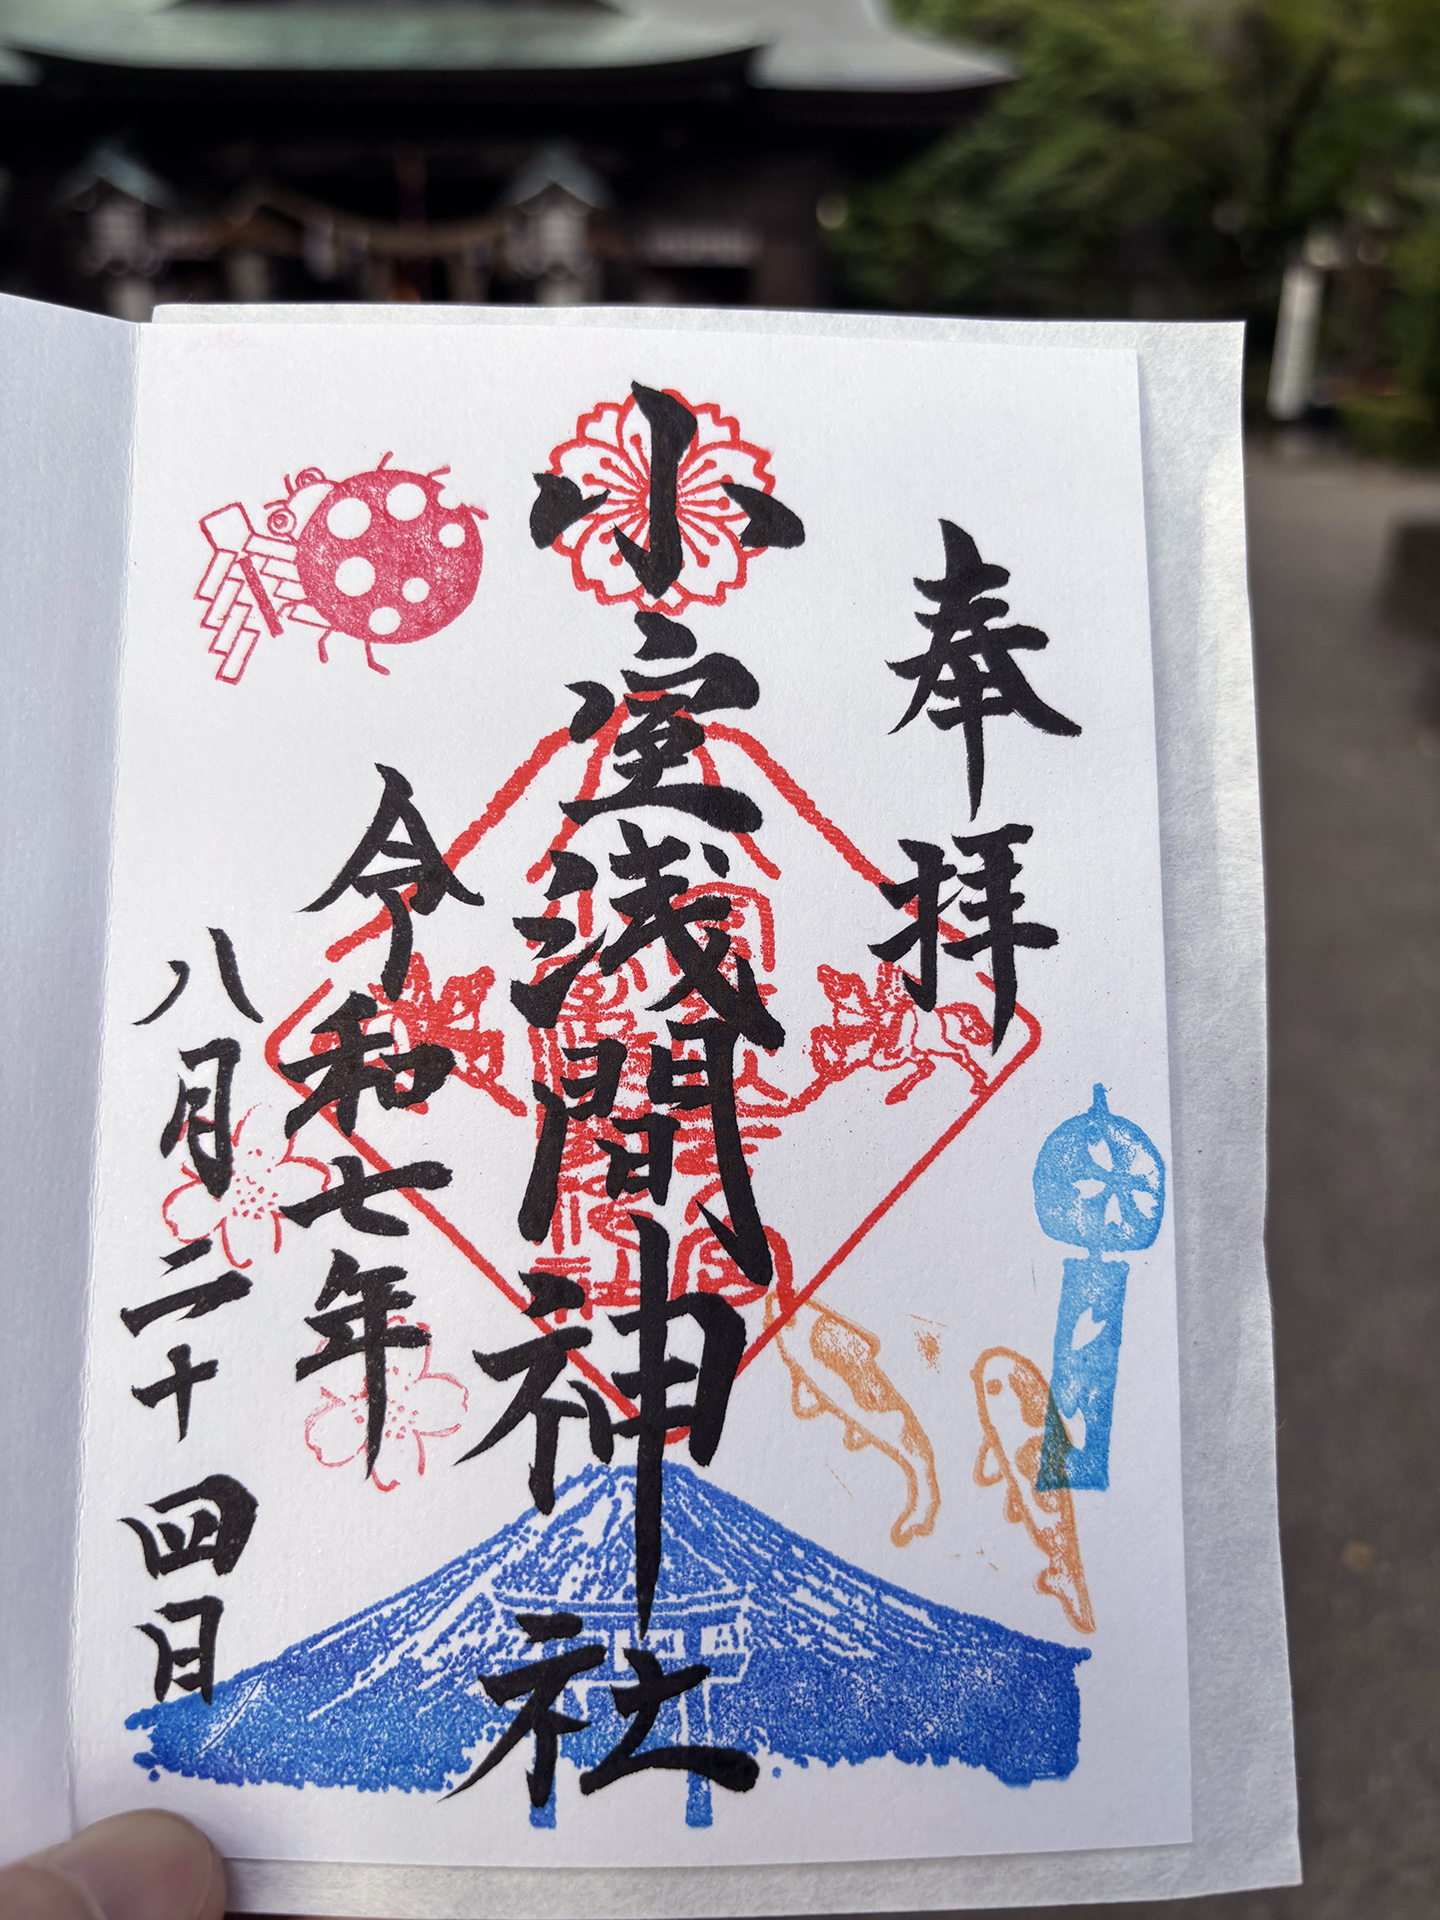 奉拝
小室浅間神社
令和七年
八月二十四日